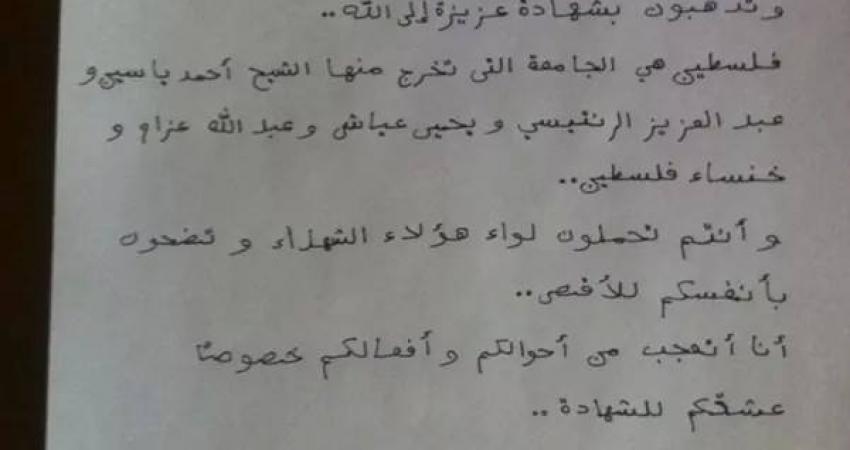 وتذهبون بشهادة عزيزة إلى الله..
فلسطين هي الجامعة التي تخرج منها الشيخ أحمد ياسين و
عبد العزيز الرنتيسي و يحيى عياش و عبد الله عزام و
خنساء فلسطين..
و أنتم تحملون لواء هؤلاء الشهداء و تضحون
بأنفسكم للأقصى..
أنا أتعجب من أحوالكم و أفعالكم خصوصًا
عشقكم للشهادة..